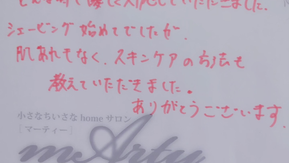 優しく対応していただきました。
シェービング始めてでしたが、
肌あれもなく、スキンケアの方法も
教えていただきました。
ありがとうございます。
小さなちいさな home サロン
［マーティー］
mArty